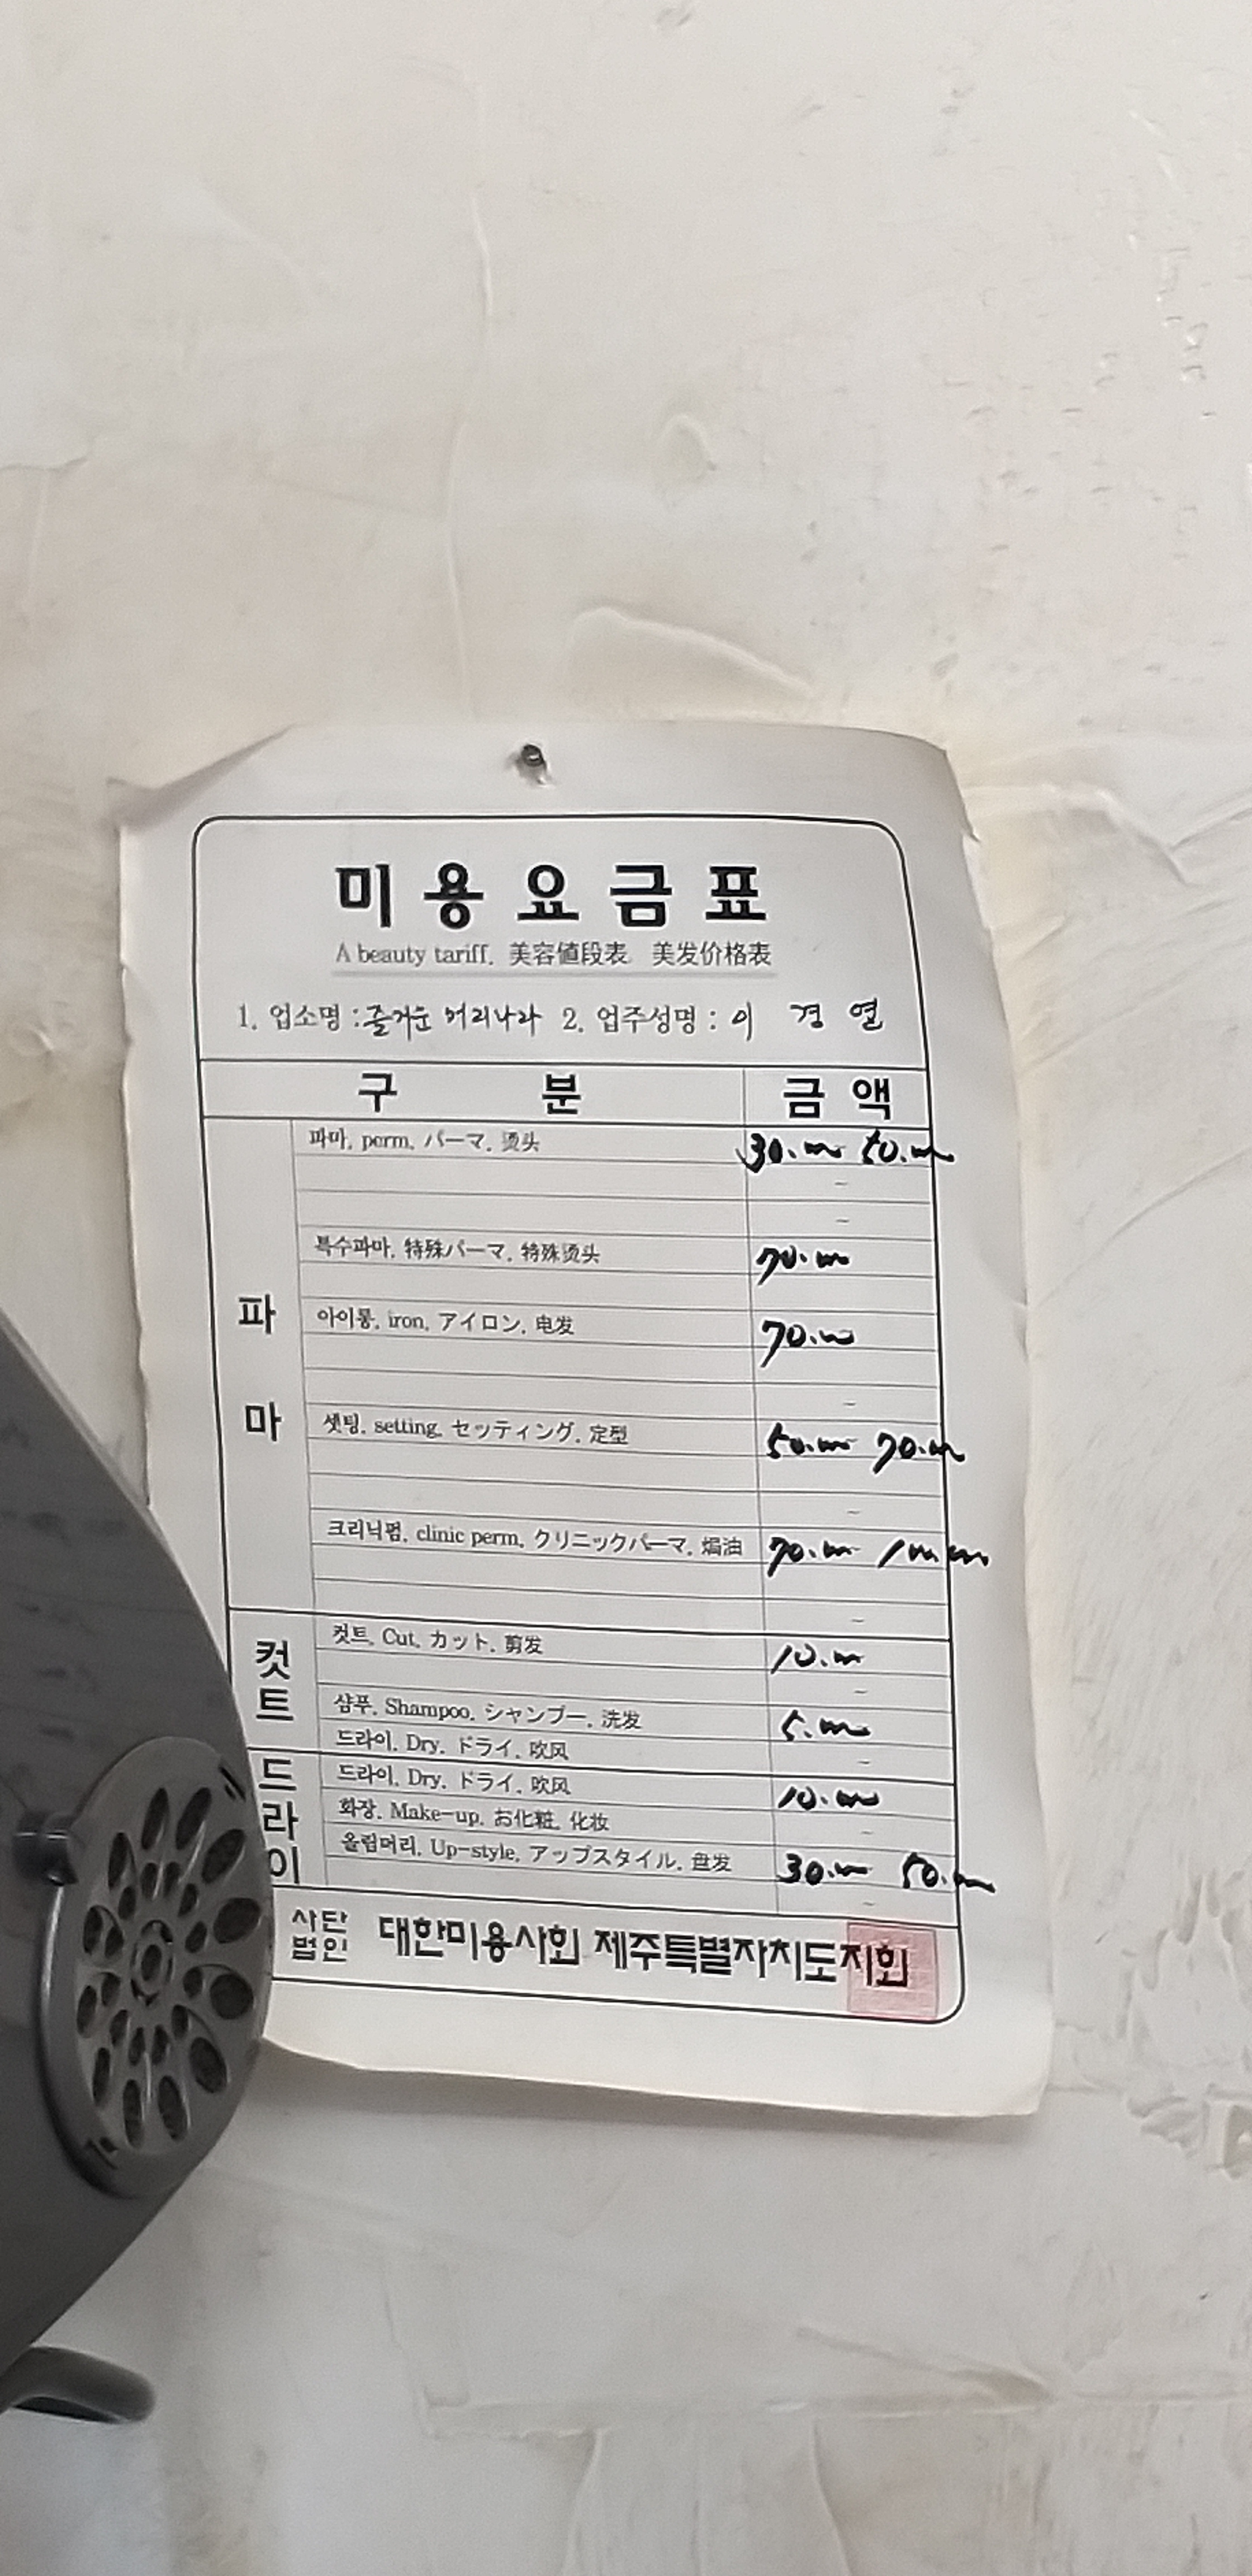 미용요금표
A beauty tariff. 美容値段表 美发价格表
1. 업소명 : 즐거운 머리나라 2. 업주성명 : 이 경 열
구 분 금 액
파마
파마, perm, パーマ, 烫头 30.000 50.000
특수파마, 特殊パーマ, 特殊烫头 70.000
아이롱, iron, アイロン, 电发 70.000
셋팅, setting, セッティング, 定型 50.000 70.000
크리닉펌, clinic perm, クリニックパーマ, 焗油 70.000
컷트
컷트, Cut, カット, 剪发 10.000
샴푸, Shampoo, シャンプー, 洗发 5.000
드라이, Dry, ドライ, 吹风
드라이
드라이, Dry, ドライ, 吹风 10.000
화장, Make-up, お化粧, 化妆
올림머리, Up-style, アップスタイル, 盘发 30.000 50.000
사단법인 대한미용사회 제주특별자치도지회